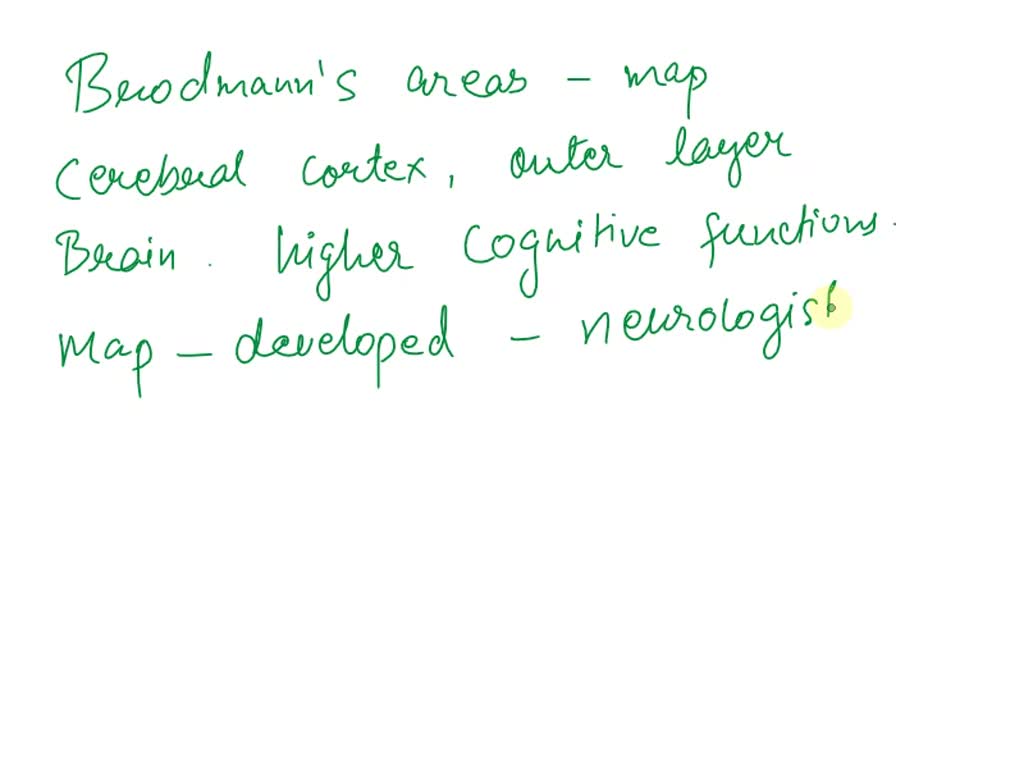 Brodmann's areas - map
Cerebral cortex, outer layer
Brain. higher cognitive functions.
Map - developed - neurologist